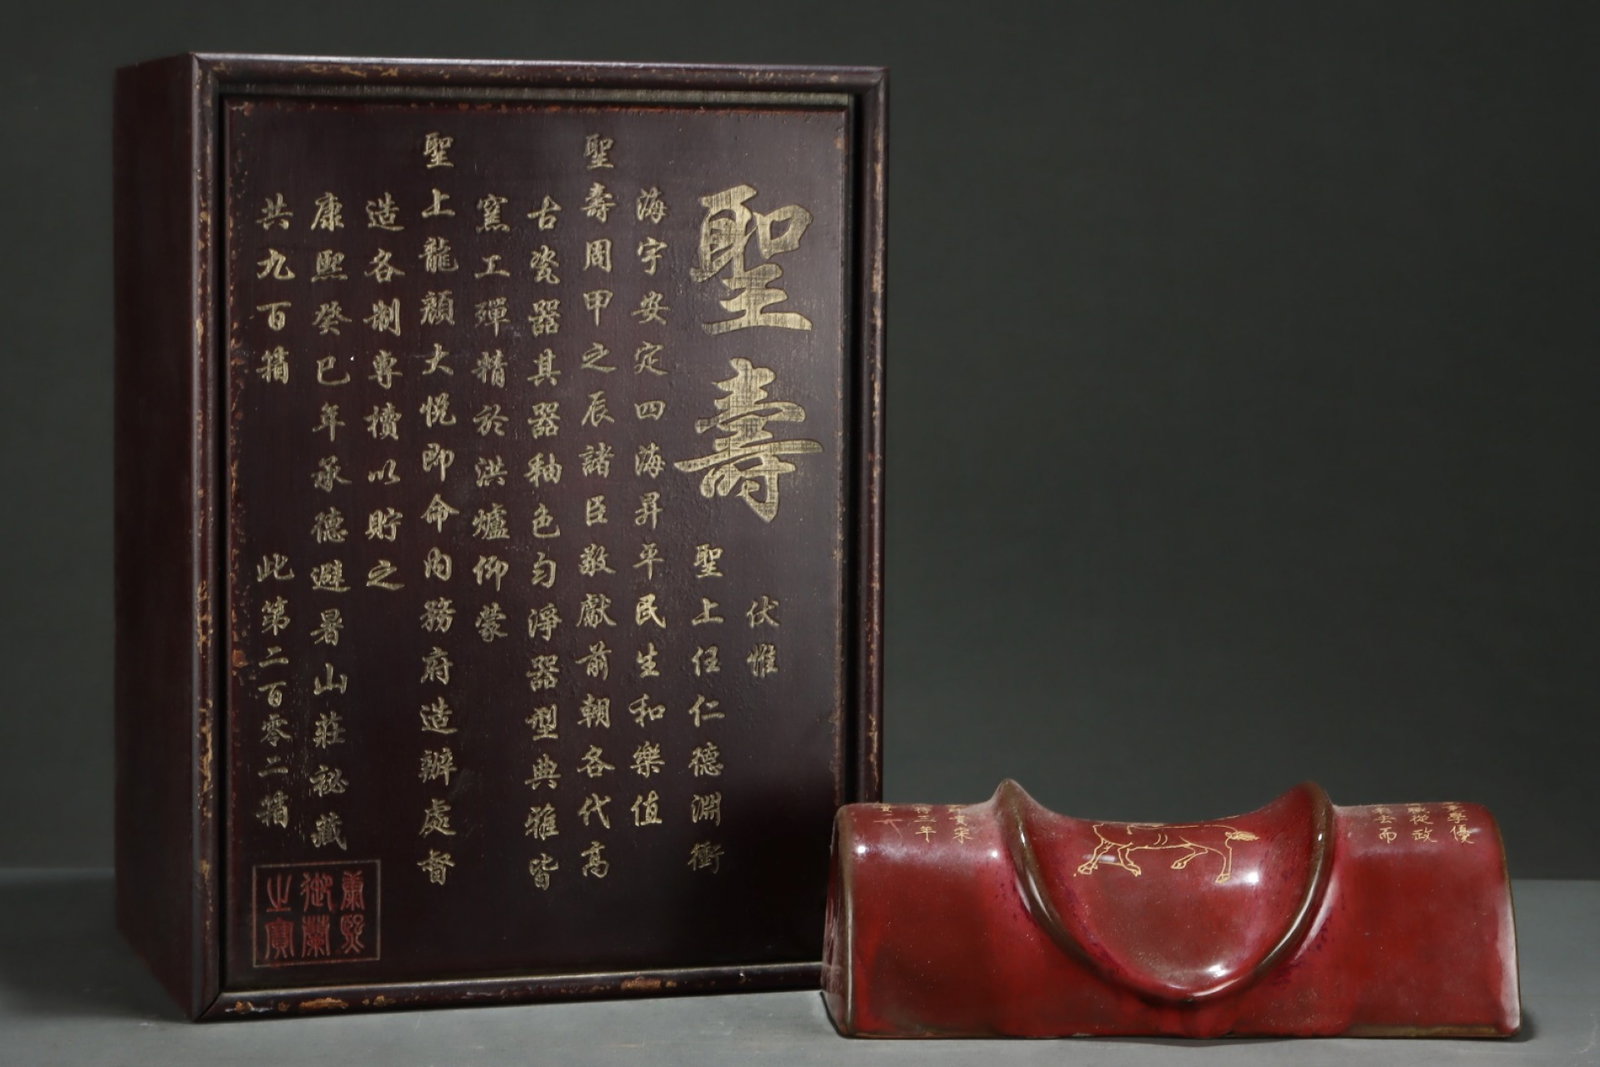 聖壽
伏惟
聖上任仁德淵衝
海宇安定四海昇平民生和樂值
聖壽周甲之辰諸臣敬獻前朝各代高
古瓷器其器釉色勻淨器型典雅皆
窯工殫精於洪爐仰蒙
聖上龍顏大悅即命內務府造辦處督
造各制專櫝以貯之
康熙癸巳年承德避暑山莊祕藏
共九百箱 此第二百零二箱
康熙
御覽
之寶
學優
從政
而
宋
三年